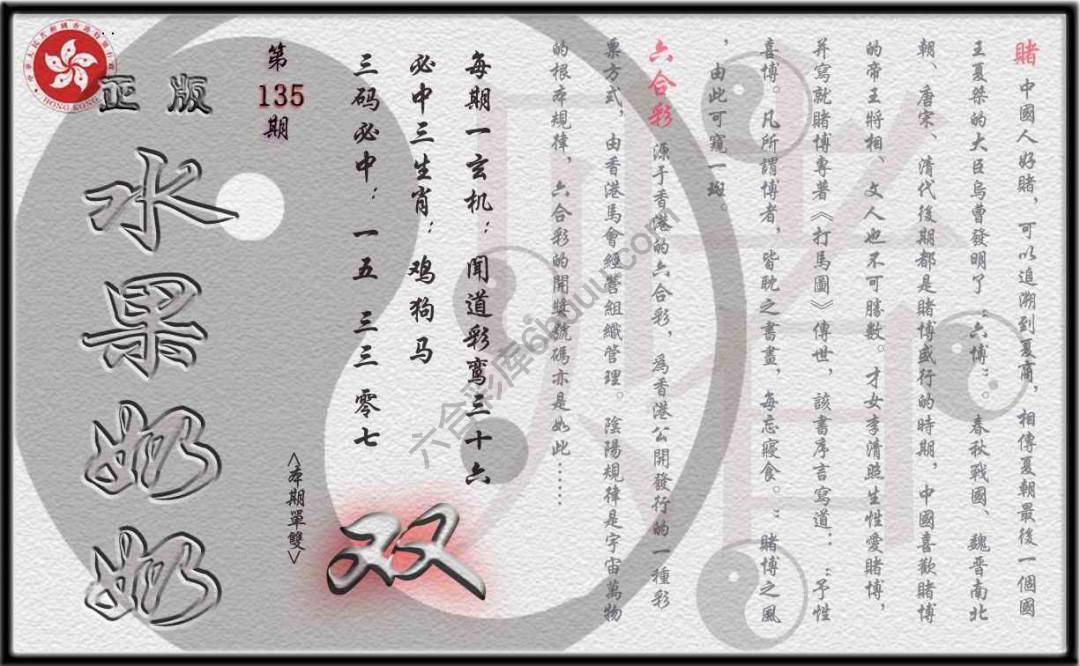 賭 中國人好賭，可以追溯到夏商，相傳夏朝最後一個國
王夏桀的大臣烏曹發明了“六博”。春秋戰國、魏晉南北
朝、唐宋、清代後期都是賭博盛行的時期，中國喜歡賭博
的帝王將相、文人也不可勝數。才女李清照生性愛賭博，
并寫就賭博專著《打馬圖》傳世，該書序言寫道：“予性
喜博。凡所謂博者，皆耽之晝晝，每忘寢食。”賭博之風
，由此可窺一斑。
六合彩 源于香港的六合彩，為香港公開發行的一種彩
票方式，由香港馬會經營組織管理。陰陽規律是宇宙萬物
的根本規律，六合彩的開獎號碼亦是如此……
每期一玄机：聞道彩鸾三十六
必中三生肖：鸡狗马
三码必中：一五 三三 零七
第
135
期
<本期單雙>
双
正版
水果奶奶
HONG KONG
六合彩库6buuu.com